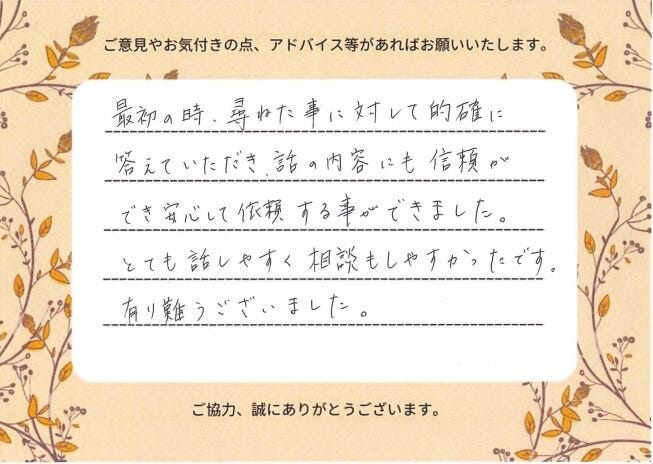 ご意見やお気付きの点、アドバイス等があればお願いいたします。
最初の時、尋ねた事に対して的確に
答えていただき、話の内容にも信頼が
でき安心して依頼する事ができました。
とても話しやすく相談もしやすかったです。
有り難うございました。
ご協力、誠にありがとうございます。